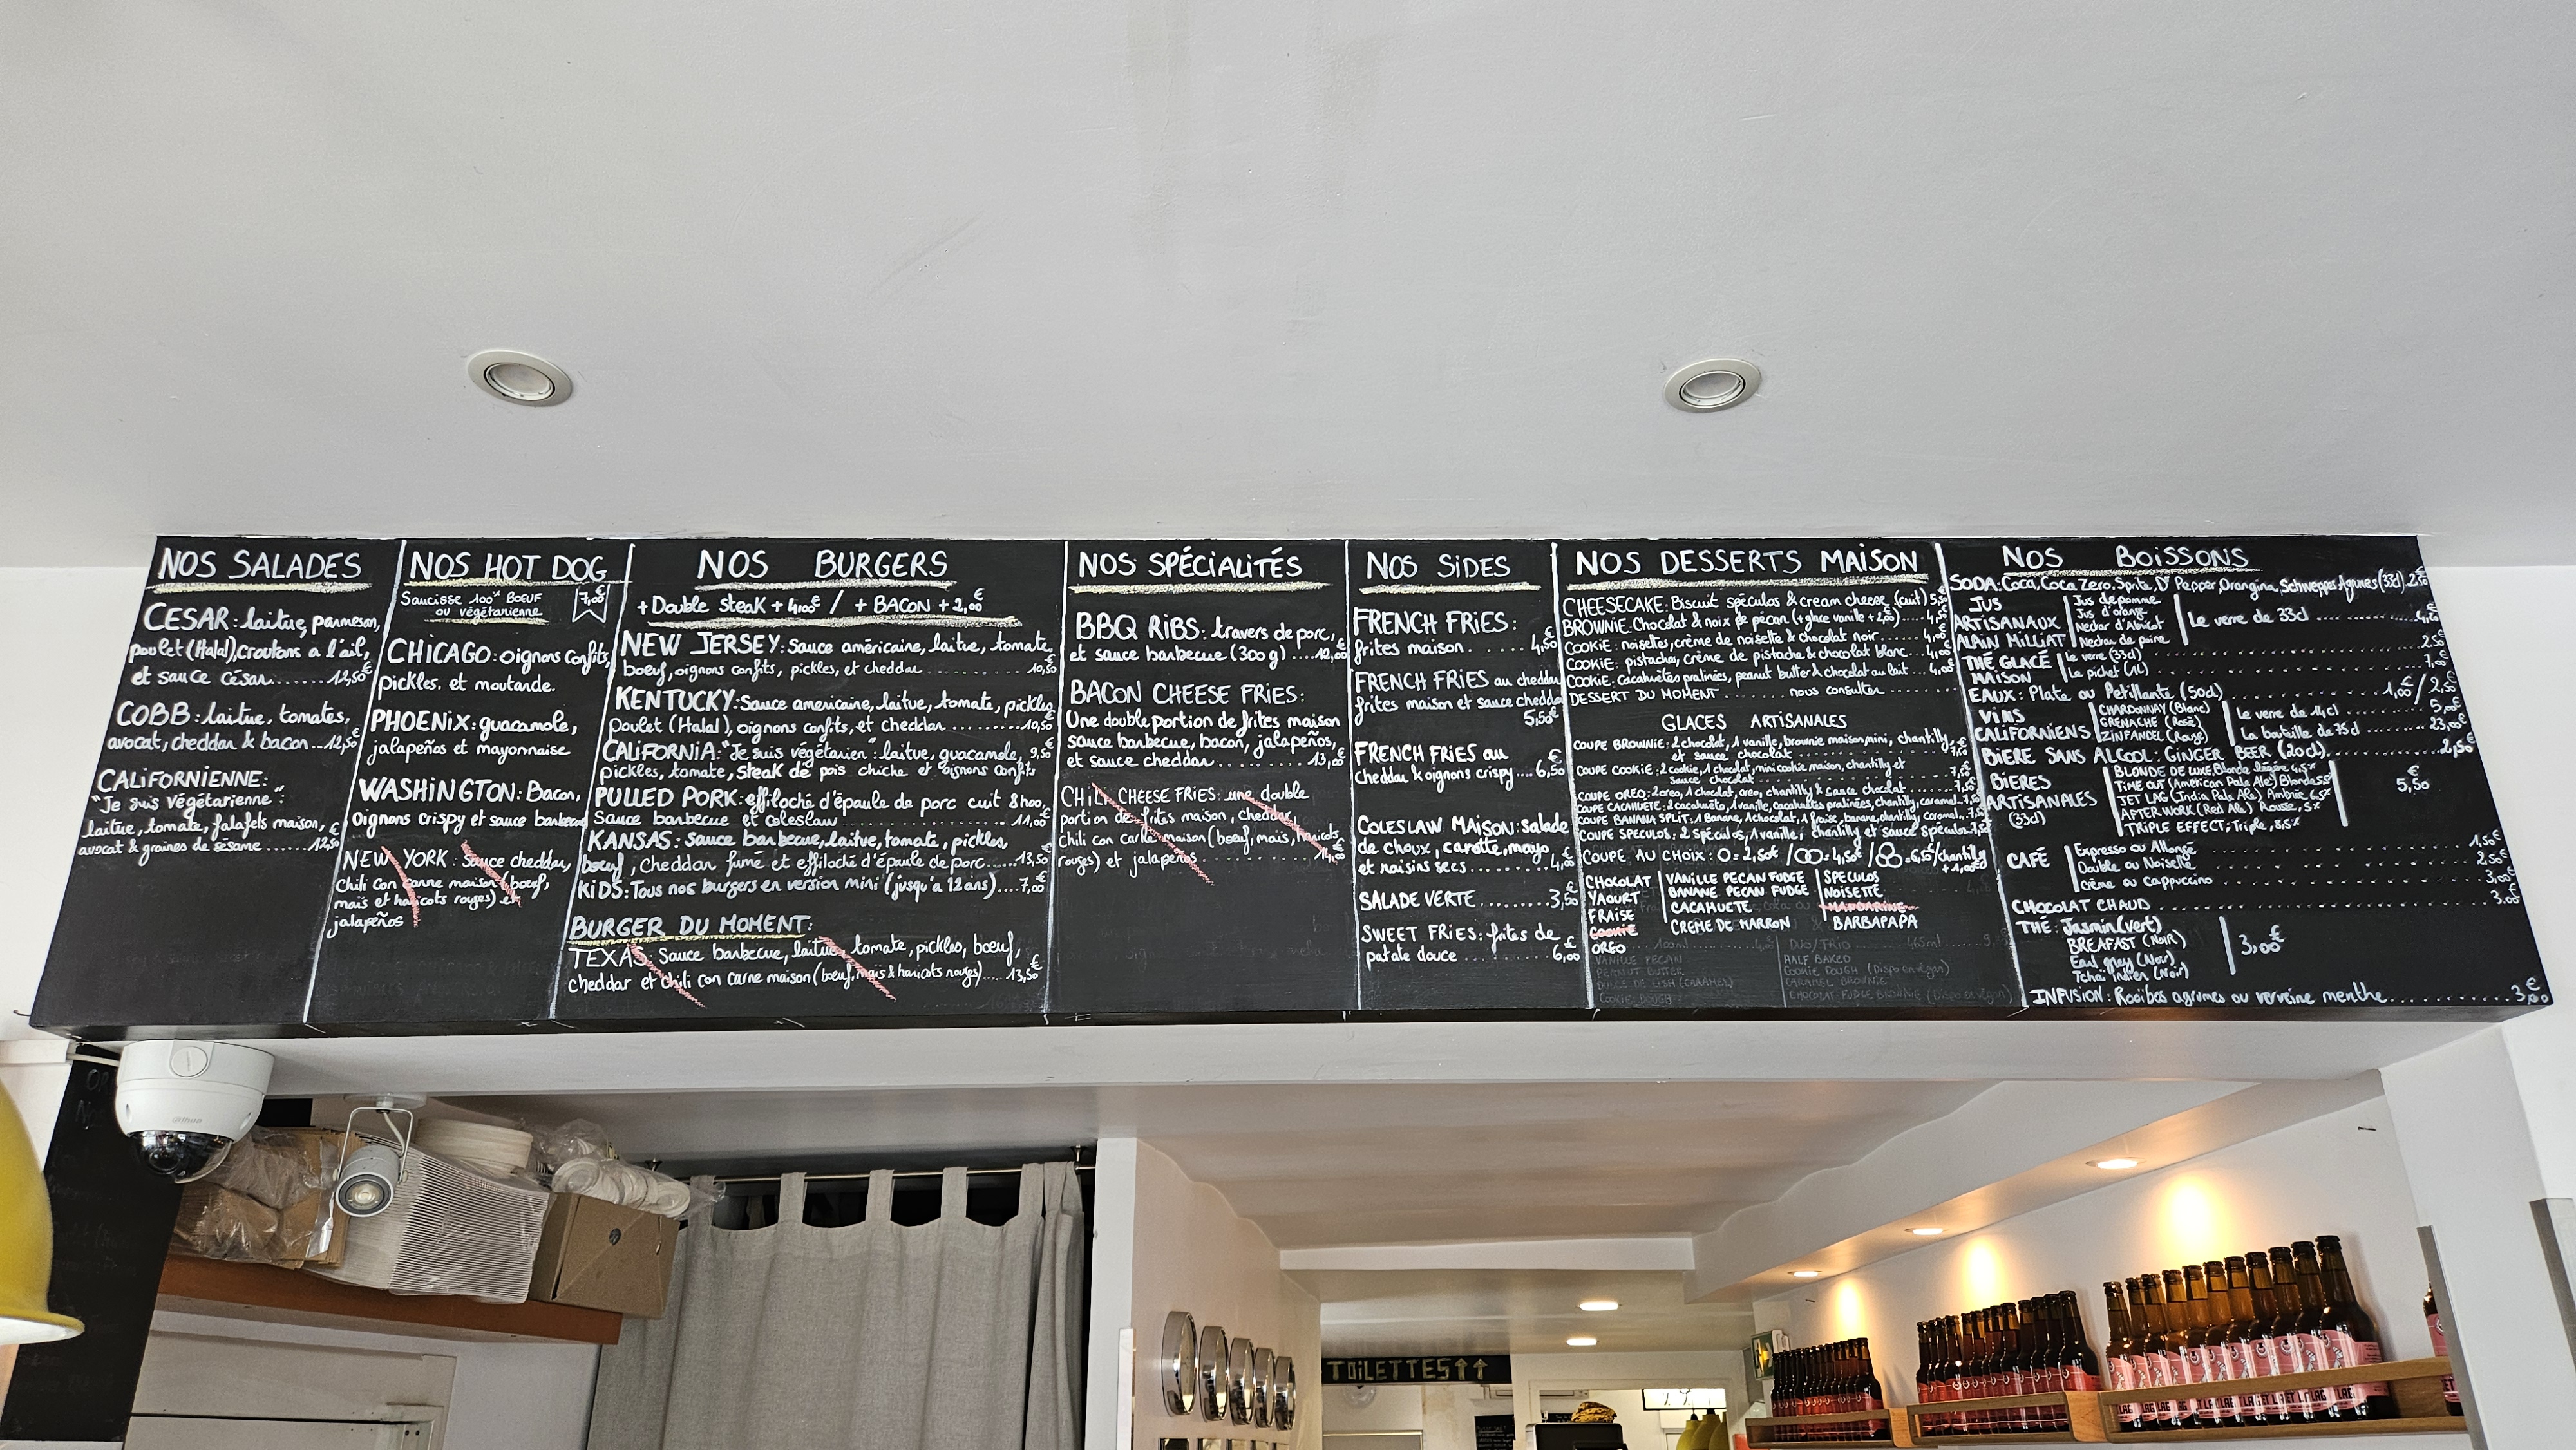 NOS SALADES
CESAR: laitue, parmesan,
poulet (Halal), croutons a l'ail,
et sauce césar.......12,50€
COBB: laitue, tomates,
avocat, cheddar & bacon...12,50€
CALIFORNIENNE:
"Je suis végétarienne":
laitue, tomate, falafels maison,
avocat & graines de sésame....12,50€
NOS HOT DOG
Saucisse 100% BOEUF
ou végétarienne
7,00€
CHICAGO: oignons confits,
pickles. et moutarde.
PHOENIX: guacamole,
jalapeños et mayonnaise
WASHINGTON: Bacon,
Oignons crispy et sauce barbecue
NEW YORK: Sauce cheddar,
Chili con carne maison (boeuf,
maïs et haricots rouges) et
jalapeños
NOS BURGERS
+Double steak + 4,00€ / + BACON + 2,00€
NEW JERSEY: Sauce américaine, laitue, tomate,
boeuf, oignons confits, pickles, et cheddar.......10,50€
KENTUCKY: Sauce americaine, laitue, tomate, pickles
Poulet (Halal), oignons confits, et cheddar.......10,50€
CALIFORNIA: "Je suis végétarien": laitue, guacamole, 9,50€
pickles, tomate, steak de pois chiche et oignons confits
PULLED PORK: effiloché d'épaule de porc cuit 8h00,
Sauce barbecue et coleslaw.......11,00€
KANSAS: Sauce barbecue, laitue, tomate, pickles,
boeuf, Cheddar fumé et effiloché d'épaule de porc.....13,50€
KIDS: Tous nos burgers en version mini (jusqu'à 12 ans)....7,00€
BURGER DU MOMENT:
TEXAS: Sauce barbecue, laitue, tomate, pickles, boeuf,
cheddar et chili con carne maison (boeuf, maïs & haricots rouges)....13,50€
NOS SPÉCIALITÉS
BBQ RIBS: travers de porc,
et sauce barbecue (300g)....12,00€
BACON CHEESE FRIES:
Une double portion de frites maison
sauce barbecue, bacon, jalapeños,
et sauce cheddar..........13,00€
CHILI CHEESE FRIES: une double
portion de frites maison, cheddar,
chili con carne maison (boeuf, maïs, haricots
rouges) et jalapeños
NOS SIDES
FRENCH FRIES:
frites maison.......4,50€
FRENCH FRIES au cheddar
frites maison et sauce cheddar
5,50€
FRENCH FRIES au
cheddar & oignons crispy....6,50€
COLESLAW MAISON: salade
de choux, carotte, mayo
et raisins secs........4,00€
SALADE VERTE.......3,50€
SWEET FRIES: frites de
patate douce........6,00€
NOS DESSERTS MAISON
CHEESECAKE: Biscuit spéculos & cream cheese (cuit) 5,50€
BROWNIE: Chocolat & noix de pecan (+glace vanille +2,00)....4,50€
COOKIE: noisettes, crème de noisette & chocolat noir.....4,00€
COOKIE: pistaches, crème de pistache & chocolat blanc...4,00€
COOKIE: cacahuètes pralinées, peanut butter & chocolat au lait...4,00€
DESSERT DU MOMENT.......nous consulter........
GLACES ARTISANALES
COUPE BROWNIE: 2 chocolat, 1 vanille, brownie maison mini, chantilly
et sauce chocolat.......7,50€
COUPE COOKIE: 2 cookie, 1 chocolat, mini cookie maison, chantilly et
sauce chocolat.......7,50€
COUPE OREO: 2 oreo, 1 chocolat, oreo, chantilly & sauce chocolat.....7,50€
COUPE CACAHUETE: 2 cacahuète, 1 vanille, cacahuètes pralinées, chantilly, caramel...7,50€
COUPE BANANA SPLIT: 1 Banane, 1 chocolat, 1 fraise, banane, chantilly, caramel...7,50€
COUPE SPECULOS: 2 Spéculos, 1 vanille, chantilly et sauce spéculos..7,50€
COUPE AU CHOIX: O=2,50€ /OO=4,50€ /OOO=6,50/chantilly
+1,00€
CHOCOLAT
YAOURT
FRAISE
COOKIE
OREO
VANILLE PECAN FUDGE
BANANE PECAN FUDGE
CACAHUETE
CREME DE MARRON
SPECULOS
NOISETTE
MANDARINE
BARBAPAPA
VANILLE PECAN
PEANUT BUTTER
COOKIE DOUGH
HALF BAKED
COOKIE DOUGH (Dispo en vegan)
CARAMEL BROWNIE
CHOCOLAT FUDGE BROWNIE (Dispo en vegan)
NOS BOISSONS
SODA: Coca, Coca Zero, Sprite, Dr Pepper, Orangina, Schweppes Agrumes (33cl) 2,50€
JUS
ARTISANAUX
ALAIN MILLIAT
Jus de pomme
Jus d'orange
Nectar d'Abricot
Nectar de poire
Le verre de 33cl..............4,50€
THÉ GLACÉ
MAISON
le verre (33cl)..........2,50€
Le pichet (1L)..........7,00€
EAUX: Plate ou Pétillante (50cl)..........1,00€/2,50€
VINS
CALIFORNIENS
CHARDONNAY (Blanc)
GRENACHE (Rosé)
ZINFANDEL (Rouge)
Le verre de 14cl..........5,00€
La bouteille de 75cl........23,00€
BIERE SANS ALCOOL: GINGER BEER (20cl)..........2,50€
BIÈRES
ARTISANALES
(33cl)
BLONDE DE LUXE, Blonde légère 4,5%
TIME OUT (American Pale Ale) Blonde 5,5°
JET LAG (India Pale Ale) Ambrée 6,5%
AFTER WORK (Red Ale) Rousse, 5%
TRIPLE EFFECT; Triple, 8,5%
5,50€
CAFÉ
Expresso ou Allongé..........1,50€
Double ou Noisette..........2,50€
Crème ou Cappuccino..........3,00€
CHOCOLAT CHAUD..........3,00€
THÉ: Jasmin (vert)
BREAFAST (Noir)
Earl grey (Noir)
Tchaï indien (Noir)
3,00€
INFUSION: Rooibos agrumes ou verveine menthe..........3,00€
TOILETTES↑↑